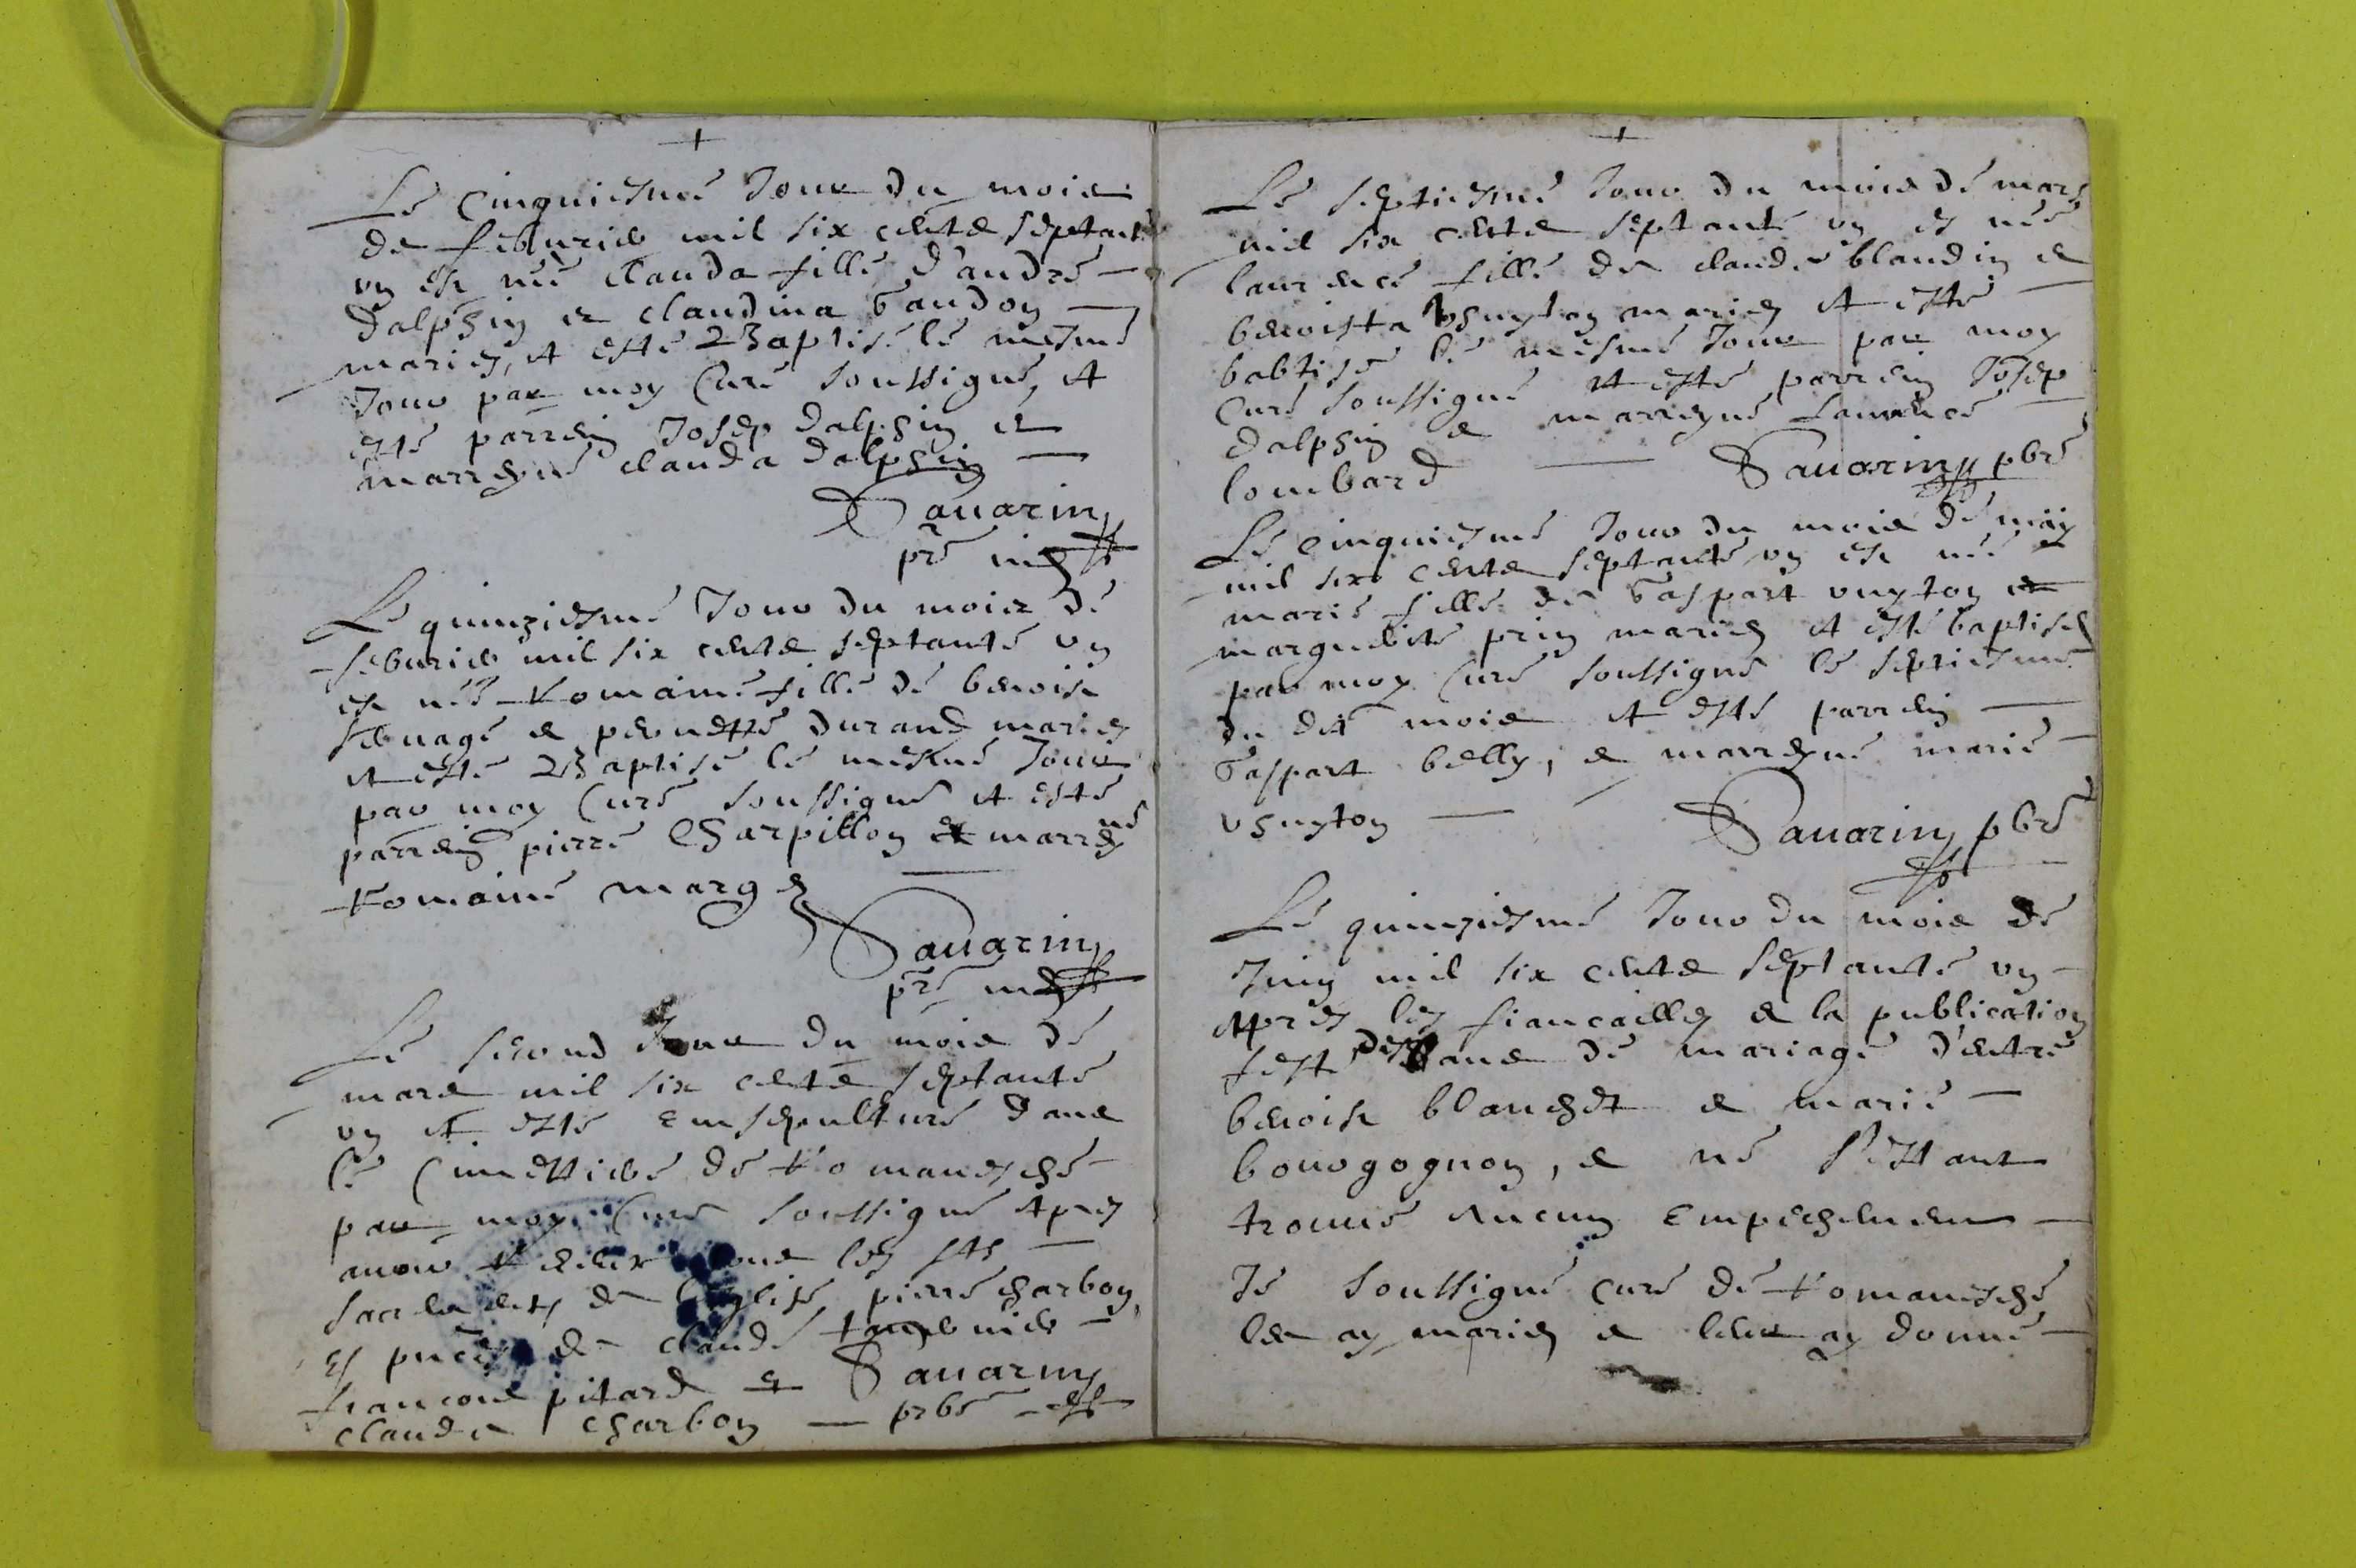 +
Le Cinquiesme Jour du mois
de feburier mil six cents septante
un est née Clauda fille d'andré
Dalphin et claudina Gaudon
mariez, et esté Baptisé le mesme
Jour par moy Curé soussigné, et
esté parrein Josep Dalphin et
marreyne clauda Dalphin
Sauarin
pre
Le quinziesme Jour du mois de
feburier mil six cents septante un
est née Romaine fille de benoist
seruage et pernette Durand mariez
et esté Baptisé le mesme Jour
par moy Curé soussigné et esté
parrein pierre Charpillon et marreyne
Romaine margez
Sauarin
pre
Le second Jour du mois de
mars mil six cents septante
un et esté Emsepulturé dans
le Cimettiere de Romanesche
par moy Curé soussigné Apres
auoir tous les sts
sacrements de l'eglise pierre charbon
es puces de claude
francois pitard et Sauarin
claude charbon prbe
+
Le septiesme Jour du mois de mars
mil six cents septante un es née
laurence fille de claude blandin et
benoista mariez et esté
babtisé le mesme Jour par moy
Curé soussigné et esté parrein Josep
Dalphin et marreyne Laurence
lombard Sauarin pbre
Le cinquiesme Jour du mois de may
mil six cents septante un est née
marie fille de Gaspart uuyton et
marguerite prin mariez et esté baptisez
par moy Curé soussigné le septiesme
du dit mois et esté parrein
Gaspart belly, et marreyne marie
Sauarin pbre
Le quinziesme Jour du mois de
Juin mil six cents septante un
Apres les fiancailles et la publication
fette de mariage d'entre
benoist blanchet et marie
bourgognon, et ne s'estant
trouué Aucun Empechement
Je soussigné curé de Romanesche
les ay mariez et leur ay donné